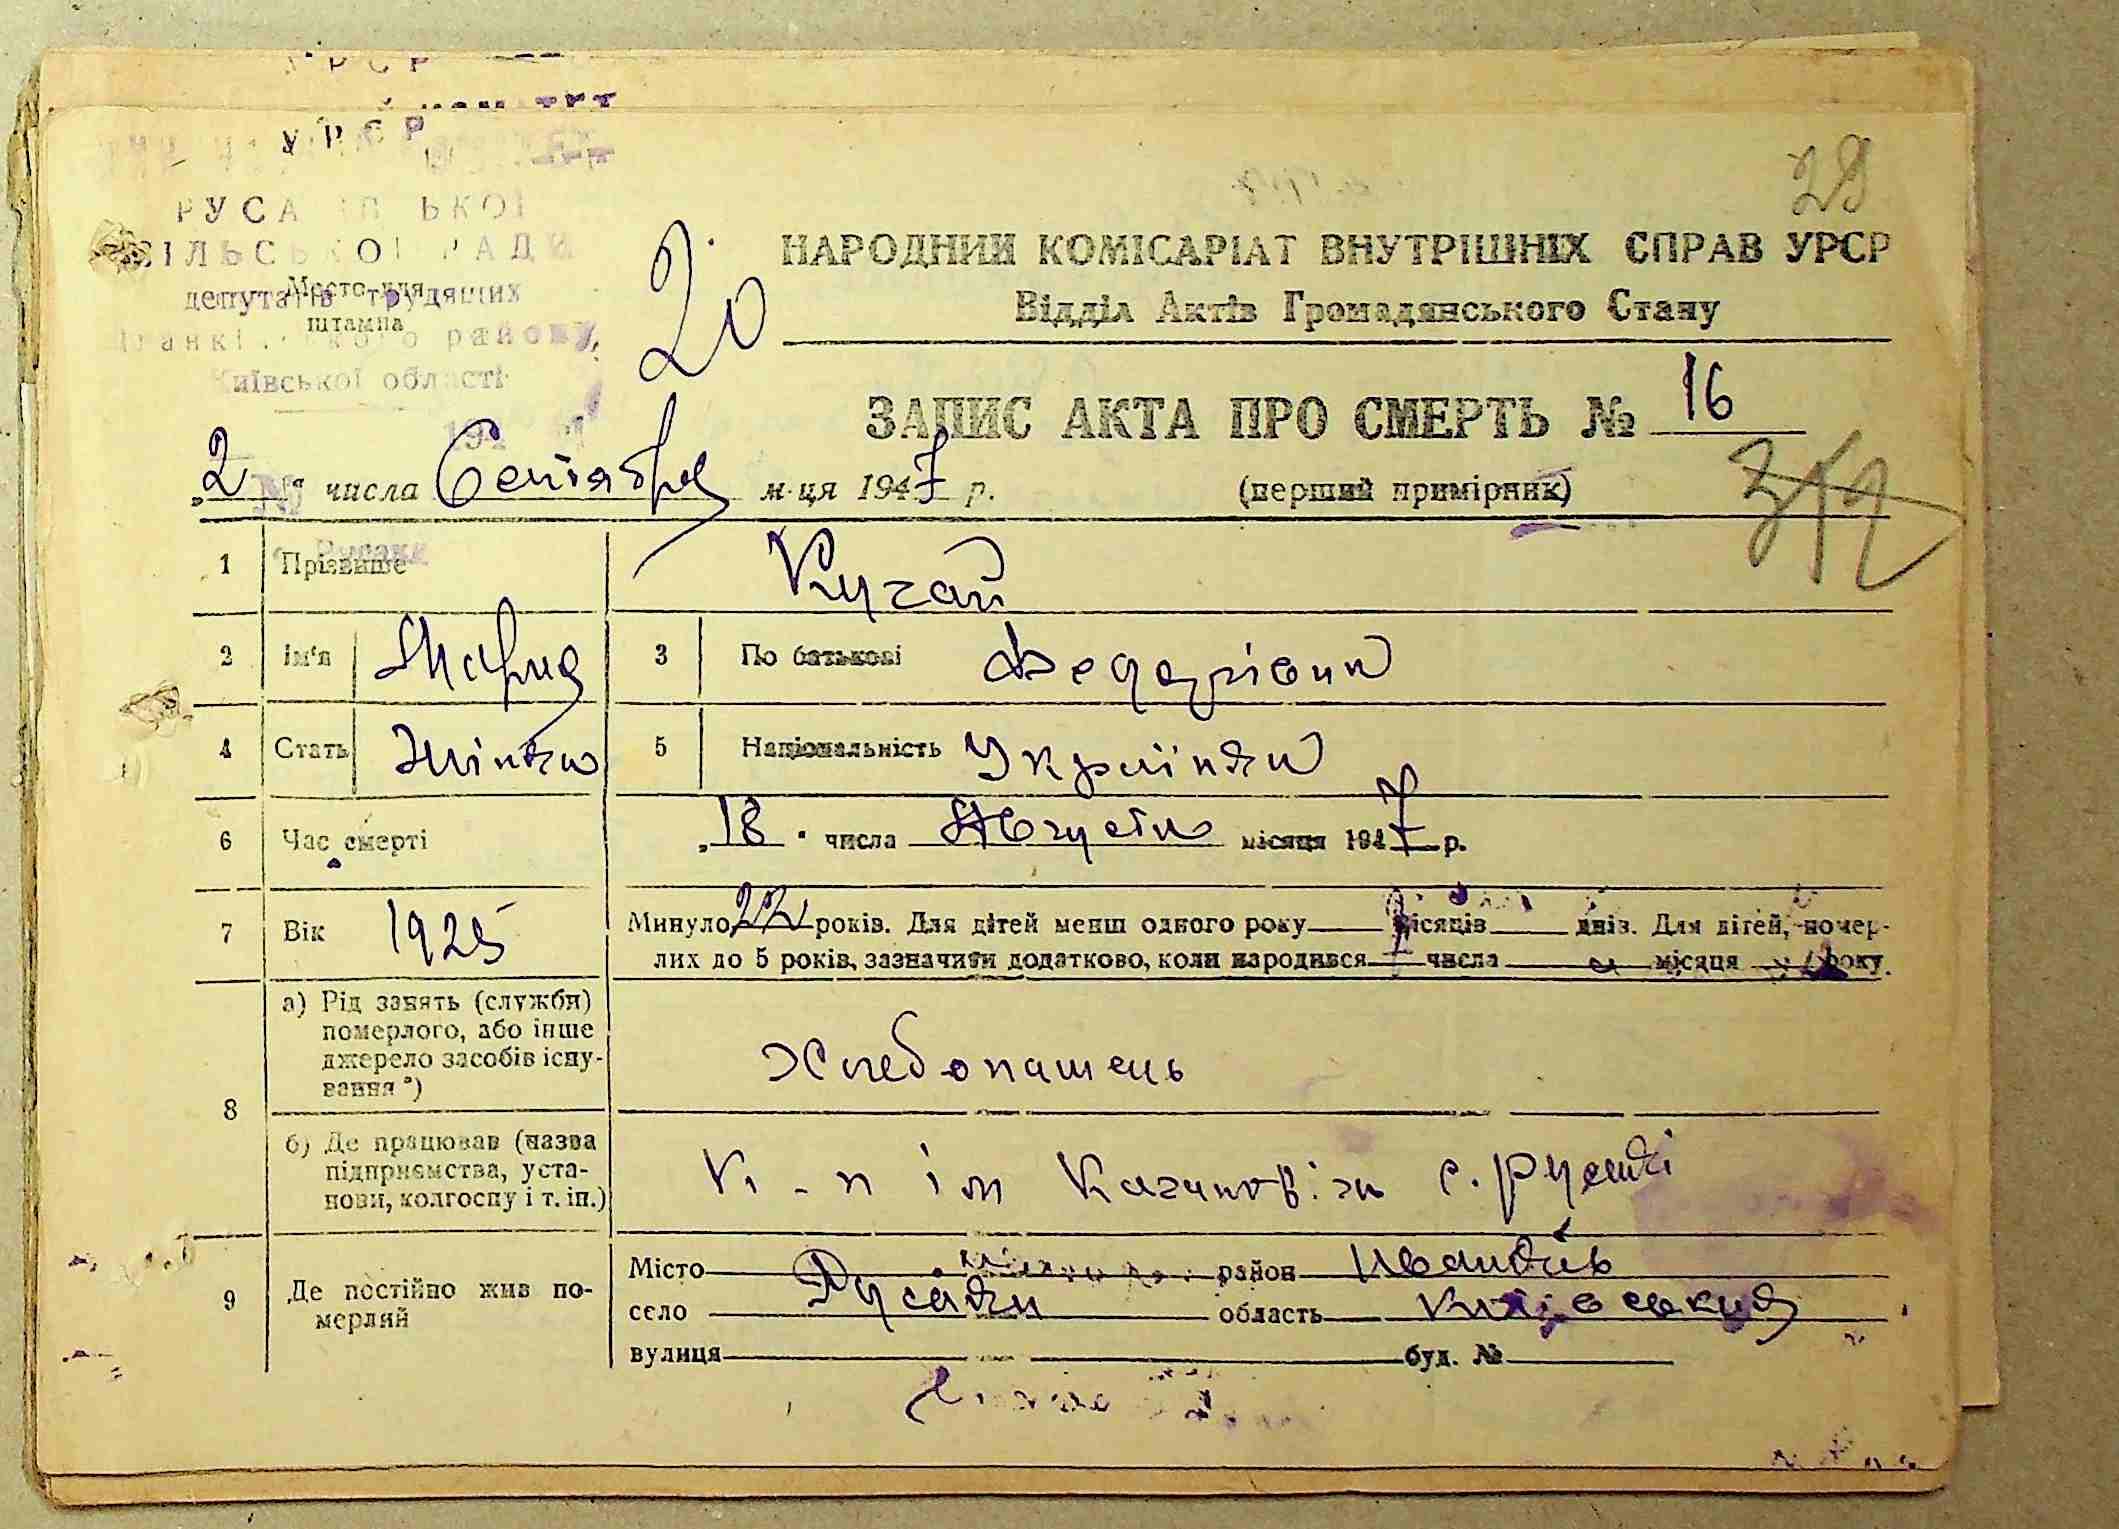 УРСР
РУСАКІВСЬКОЇ
СІЛЬСЬКОЇ РАДИ
депутатів трудящих
Місто для
штампа
Іванківського району,
Київської області
28
20
НАРОДНИЙ КОМІСАРІАТ ВНУТРІШНІХ СПРАВ УРСР
Відділ Актів Громадянського Стану
ЗАПИС АКТА ПРО СМЕРТЬ № 16
„2" числа Сентября м-ця 1947 р. (перший примірник)
1 Прізвище Кучай
2 Ім'я Мария 3 По батькові Федорівна
4 Стать Жінка 5 Національність Українка
6 Час смерті „18" числа Августа місяця 1947 р.
7 Вік 1925 Минуло 22 років. Для дітей менш одного року місяців днів. Для дітей, помер-
лих до 5 років, зазначити додатково, коли народився числа місяця року.
8 а) Рід занять (служби)
померлого, або інше
джерело засобів існу-
вання*)
Хлебопашець
б) Де працював (назва
підприємства, уста-
нови, колгоспу і т. ін.)
К-п ім Кагановіча с. Русакі
9 Де постійно жив по-
мерлий
Місто район Иванків
село Русаки область Київська
вулиця буд. №